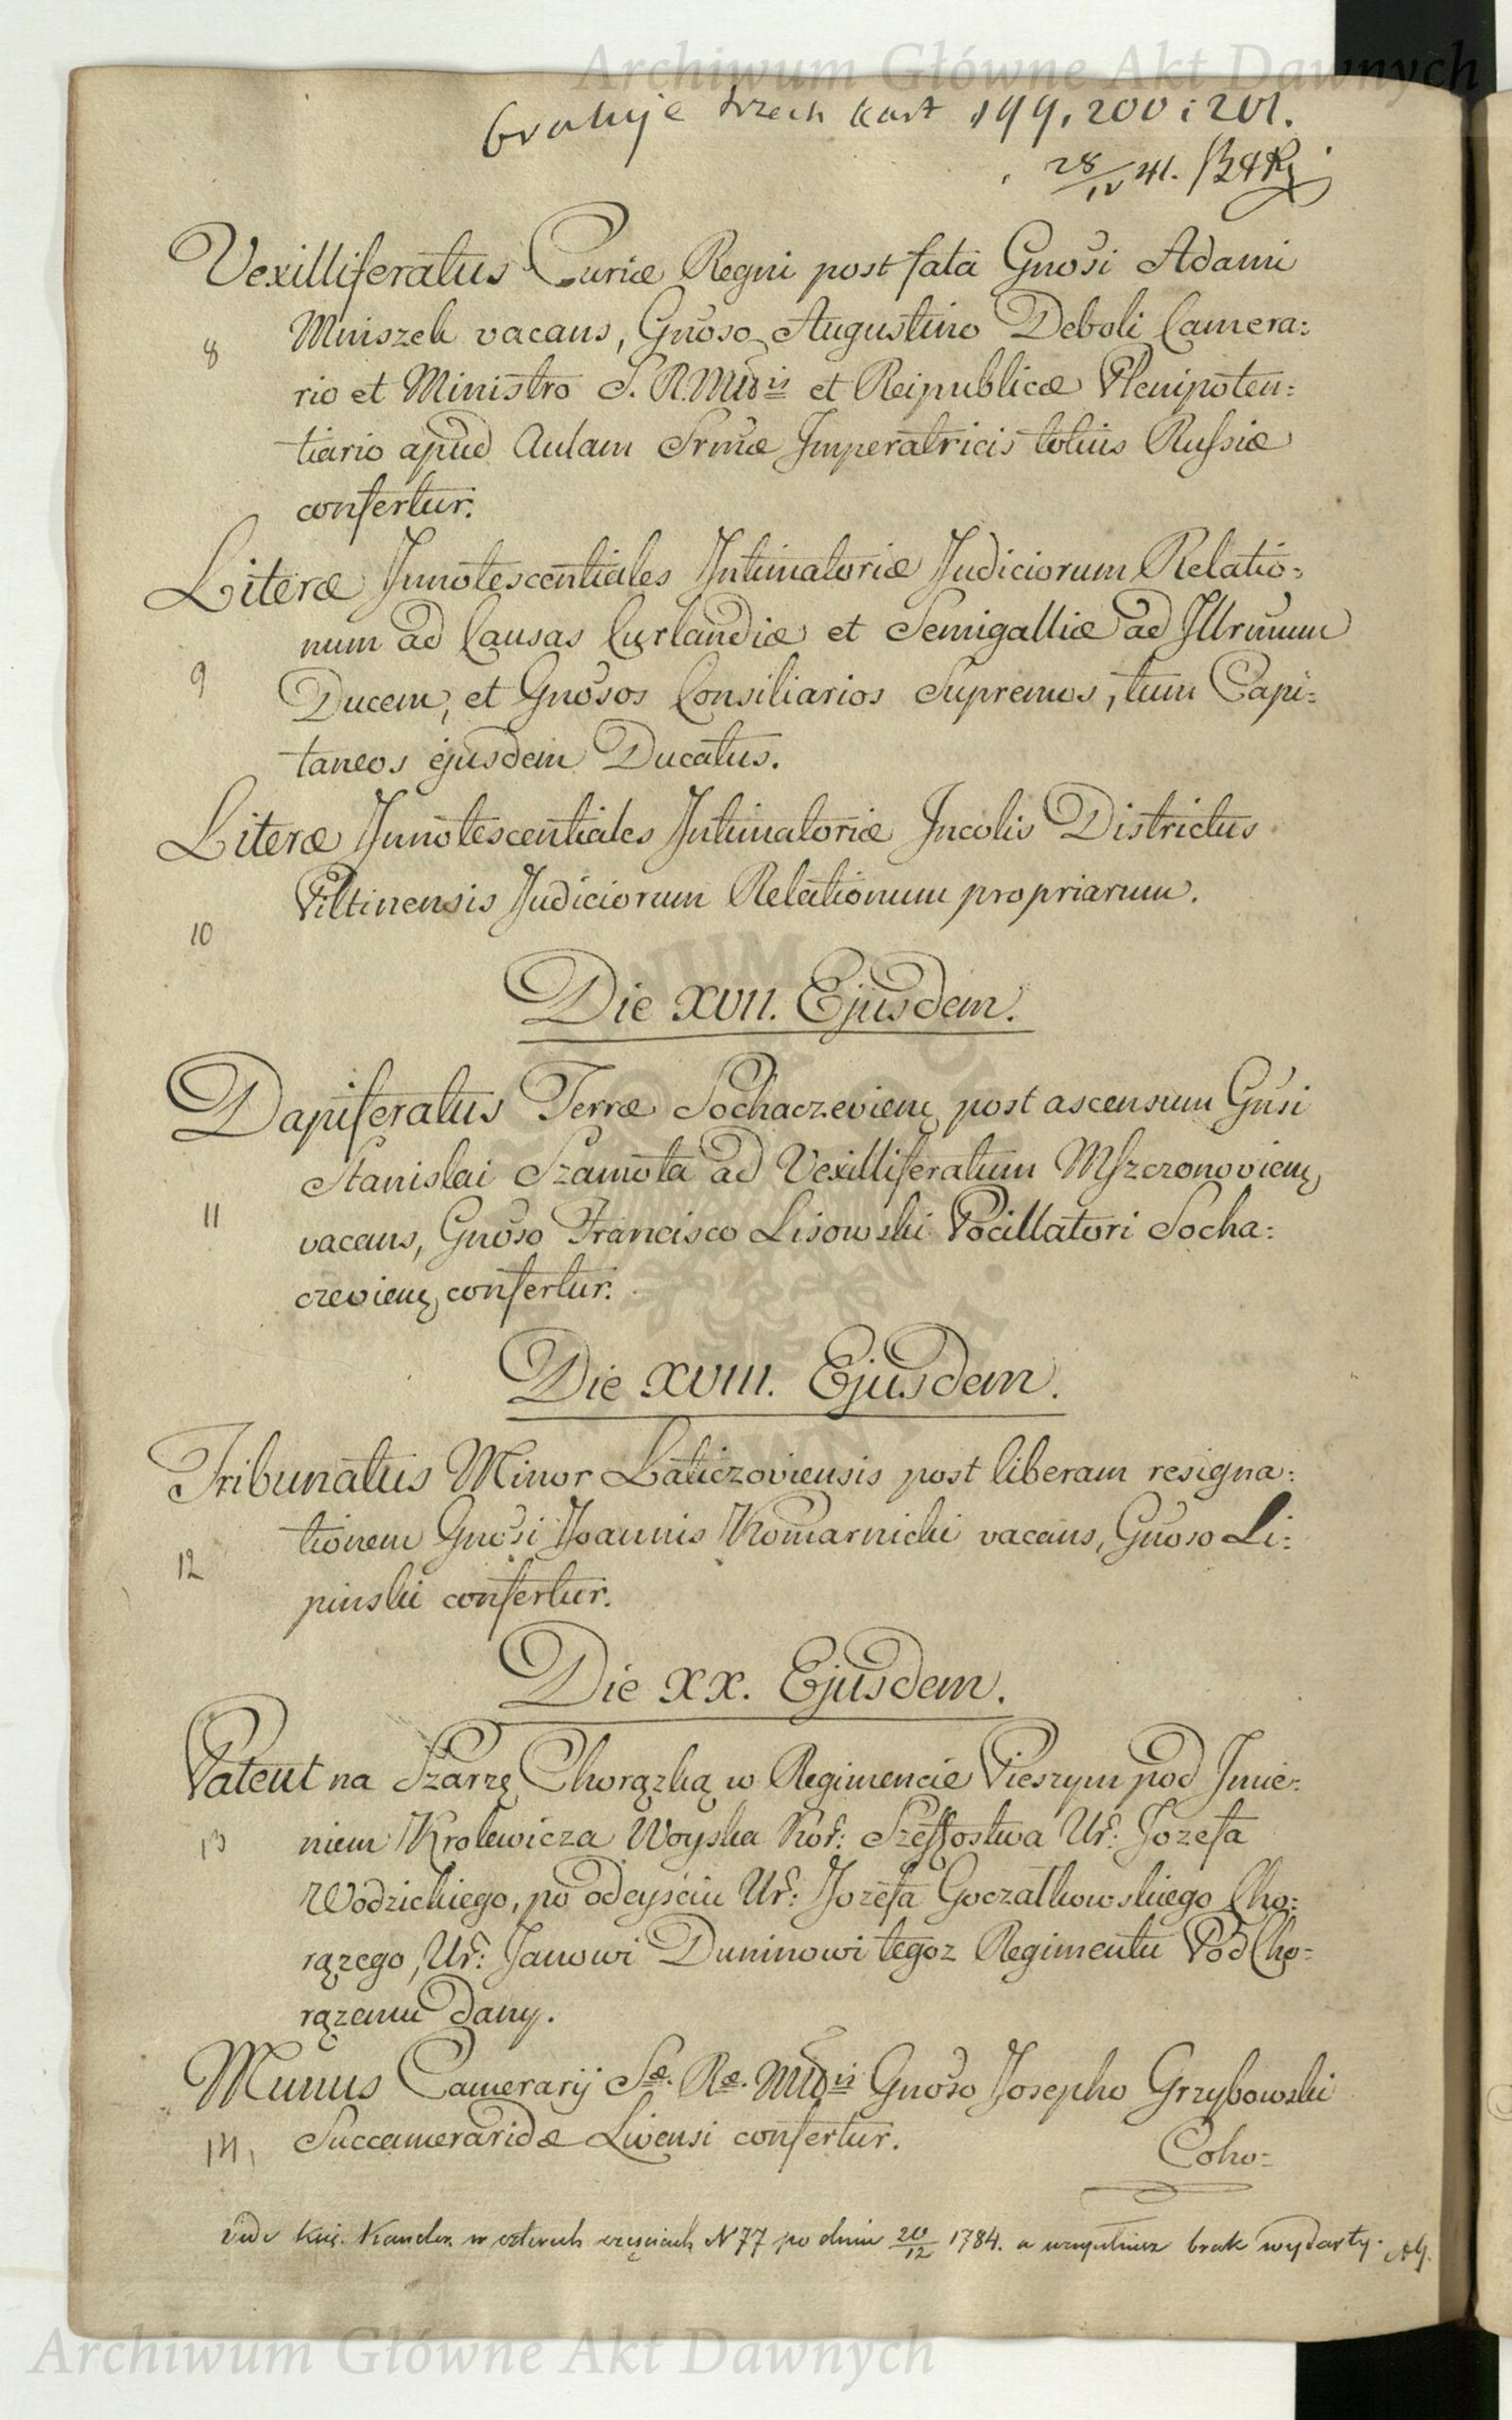 Archiwum Główne Akt Dawnych
brakuje trzech kart 199, 200 i 201.
28/IV 41.
Vexilliferatus Curiæ Regni post fata Gnosi Adami
8 Mniszek vacans, Gnoso Augustino Deboli Camera:
rio et Ministro S. R. Mttis et Reipublicæ Plenipoten:
tiario apud Aulam Srmæ Imperatricis totius Russiæ
confertur.
Literæ Innotescentiales Intimatoriæ Judiciorum Relatio:
num ad Causas Curlandiæ et Semigalliæ ad Illrmum
9 Ducem, et Gnosos Consiliarios Supremos, tum Capi:
taneos ejusdem Ducatus.
Literæ Innotescentiales Intimatoriæ Incolis Districtus
Piltinensis Judiciorum Relationum propriarum.
10
Die XVII. Ejusdem.
Dapiferatus Terræ Sochaczevien post ascensum Gnsi
Stanislai Szamota ad Vexilliferatum Mszczonovien
11 vacans, Gnoso Francisco Lisowski Pocillatori Socha:
czevien confertur.
Die XVIII. Ejusdem.
Tribunatus Minor Laticzoviensis post liberam resigna:
tionem Gnosi Joannis Komarnicki vacans, Gnoso Li:
12 pinski confertur.
Die XX. Ejusdem.
Patent na Szarzę Chorązką w Regimencie Pieszym pod Imie:
13 niem Krolewicza Woyska Kor: Szeffostwa Ur: Jozefa
Wodzickiego, po odeyściu Ur: Jozefa Goczałkowskiego Cho:
rązego, Ur: Janowi Duninowi tegoz Regimentu Pod Cho:
rązemu dany.
Munus Camerarij Sæ. Ræ. Mttis Gnoso Josepho Grzybowski
14, Succameraridæ Livensi confertur.
Coho:
vide Księ. Kancler. w czterech częściach N 77 po dniu 20/12 1784. a uzupełnisz brak wydarty.
Archiwum Główne Akt Dawnych